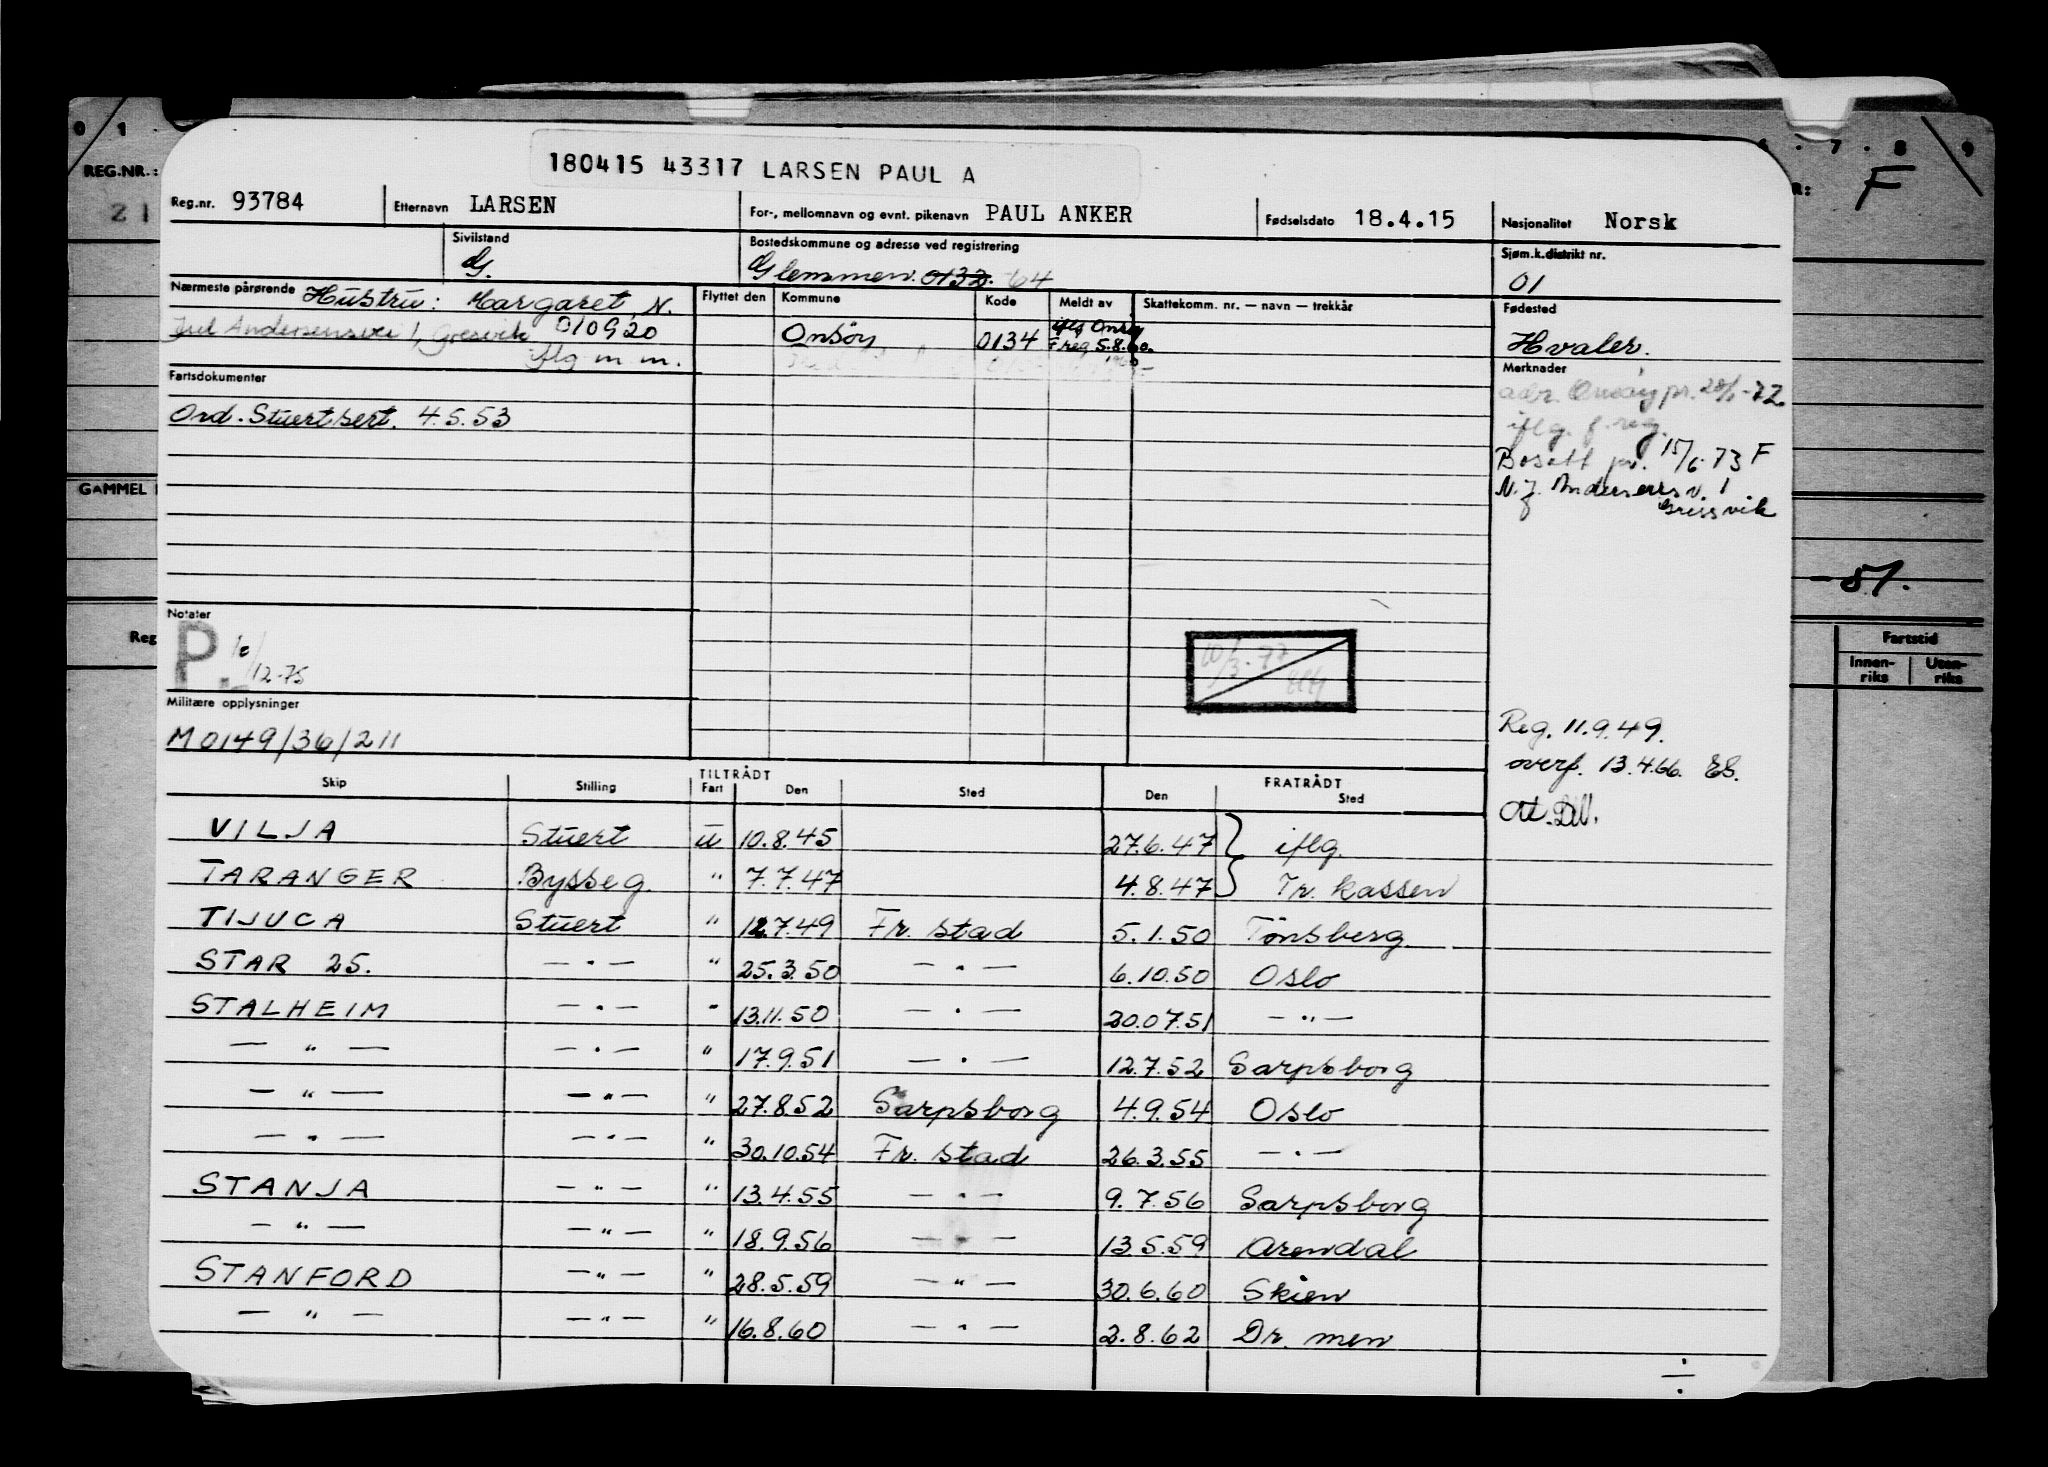 0 1 .
. 7 . 8 9
REG.NR.:
R: F
21
180415 43317 LARSEN PAUL A
Reg.nr. 93784 Etternavn LARSEN For-, mellomnavn og evnt. pikenavn PAUL ANKER Fødselsdato 18.4.15 Nasjonalitet Norsk
Sivilstand G. Bostedskommune og adresse ved registrering Glemmen. 0132. -64 Sjøm.k.distrikt nr. 01
Nærmeste pårørende Hustru: Margaret, N. Flyttet den Kommune Kode Meldt av Skattekomm. nr. — navn — trekkår Fødested
Andersensvei 1, Gresvik 010920 Onsöy 0134 iflg Onsöy
F.reg 5.8.60. Hvaler.
iflg m.m.
Fartsdokumenter
Merknader
adr. Onsöy pr. -72.
Ord. Stuertsert. 4.5.53
iflg. f. reg.
Bosatt pr. 15/6-73 F
GAMMEL
N. J. Andersensv. 1
Gressvik
-51.
Notater
Reg
P. 12-75
10/3-77
Fartstid
Innen-riks Uten-riks
Militære opplysninger
M 0149/36/211
Reg. 11.9.49.
overf. 13.4.66. ES.
TILTRÅDT FRATRÅDT
Skip Stilling Fart Den Sted Den Sted
VILJA Stuert u 10.8.45 27.6.47 } iflg.
TARANGER Bysseg. " 7.7.47 4.8.47 } Tr. kassen
TIJUCA Stuert " 12.7.49 Fr. stad 5.1.50 Tönsberg
STAR 25. — " — " 25.3.50 — " — 6.10.50 Oslo
STALHEIM — " — " 13.11.50 — " — 20.07.51 — " —
— " — — " — " 17.9.51 — " — 12.7.52 Sarpsborg
— " — — " — " 27.8.52 Sarpsborg 4.9.54 Oslo
— " — — " — " 30.10.54 Fr. stad 26.3.55 — " —
STANJA — " — " 13.4.55 — " — 9.7.56 Sarpsborg
— " — — " — " 18.9.56 — " — 13.5.59 Arendal
STANFORD — " — " 28.5.59 — " — 30.6.60 Skien
— " — — " — " 16.8.60 — " — 2.8.62 Dr. men
÷